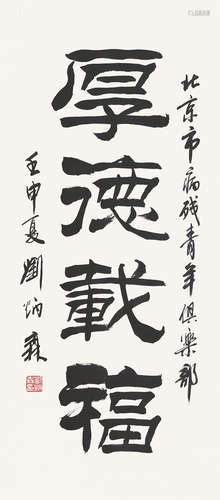 北京市病残青年俱樂部
厚德載福
壬申夏劉炳森